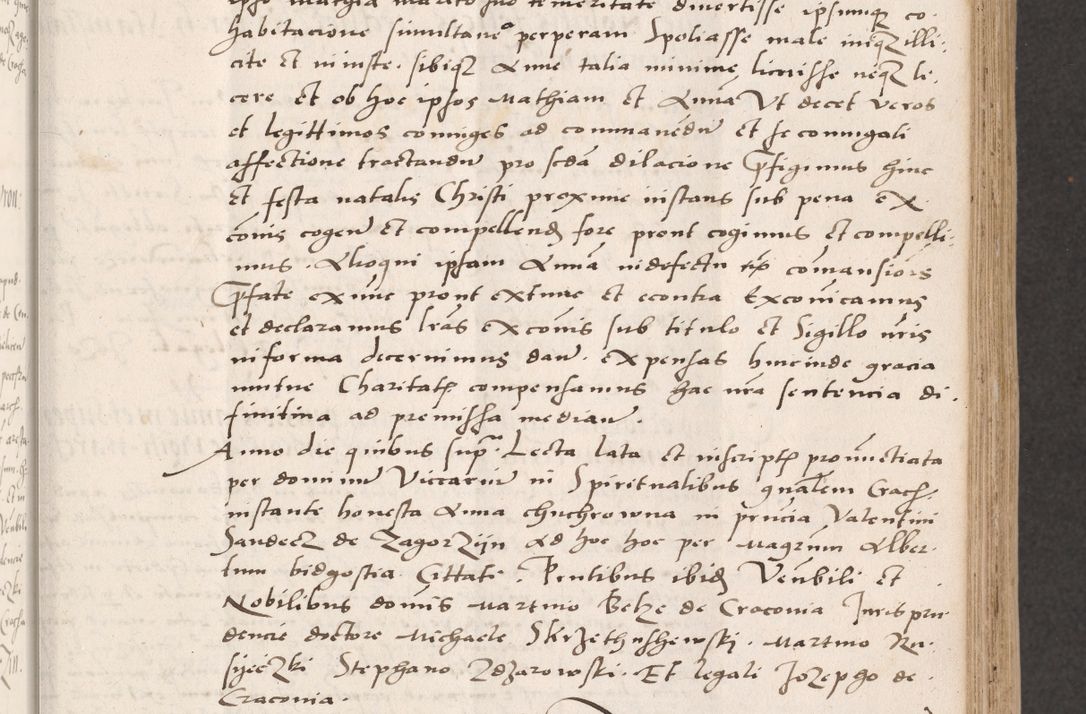 ipso Mathia marito suo temeritate divertisse ipsumqȝ co-
habitacione simultanea perperam Spoliasse male iniqȝ illi-
cite et iniuste. sibiqȝ Anne talia minime licuisse neqȝ li-
cere et ob hoc ipsos Mathiam et Annā Vt decet veros
et legittimos coniuges ad commanēdū et se coniugali
affectione tractandū pro scdā dilacione Pfigimus hinc
et festa natalis Christi proxime instans sub pena ex-
cōnis cogeñ et compellendȝ fore prout cogimus et compelli-
mus. Alioqui ipsam Annā in defectu comansionis
Pfate ex nunc prout ex tunc et econtra Excōicamus
et declaramus lrās excōnis sub titulo et Sigillo nrīs
in forma decernimus dañ. expensas hincinde gracia
mutue Charitatȩ compensamus hac nrā sentencia di-
finitiua ad premissa median̄.
Anno die quibus suprā. Lecta lata et in scriptȩ pronūctiata
per dominū Viccariū in Spiritualibus gnālem Crach.
instante honesta Anna chuchrowna in prn̄cia Valentini
Sandecȝ de Zagorzijn Ad hoc hoc per Magrūm Alber-
tum bidgostia Cittati. Prntibus ibidȝ Venbīli et
Nobilibus domīs Martino Belze de Craconia Juris pru-
dencie doctore Michaele Skrzethushewski. Martino Ra-
sijeczki Stephano Zdzarowski. Et legali Jozepho de
Craconia.